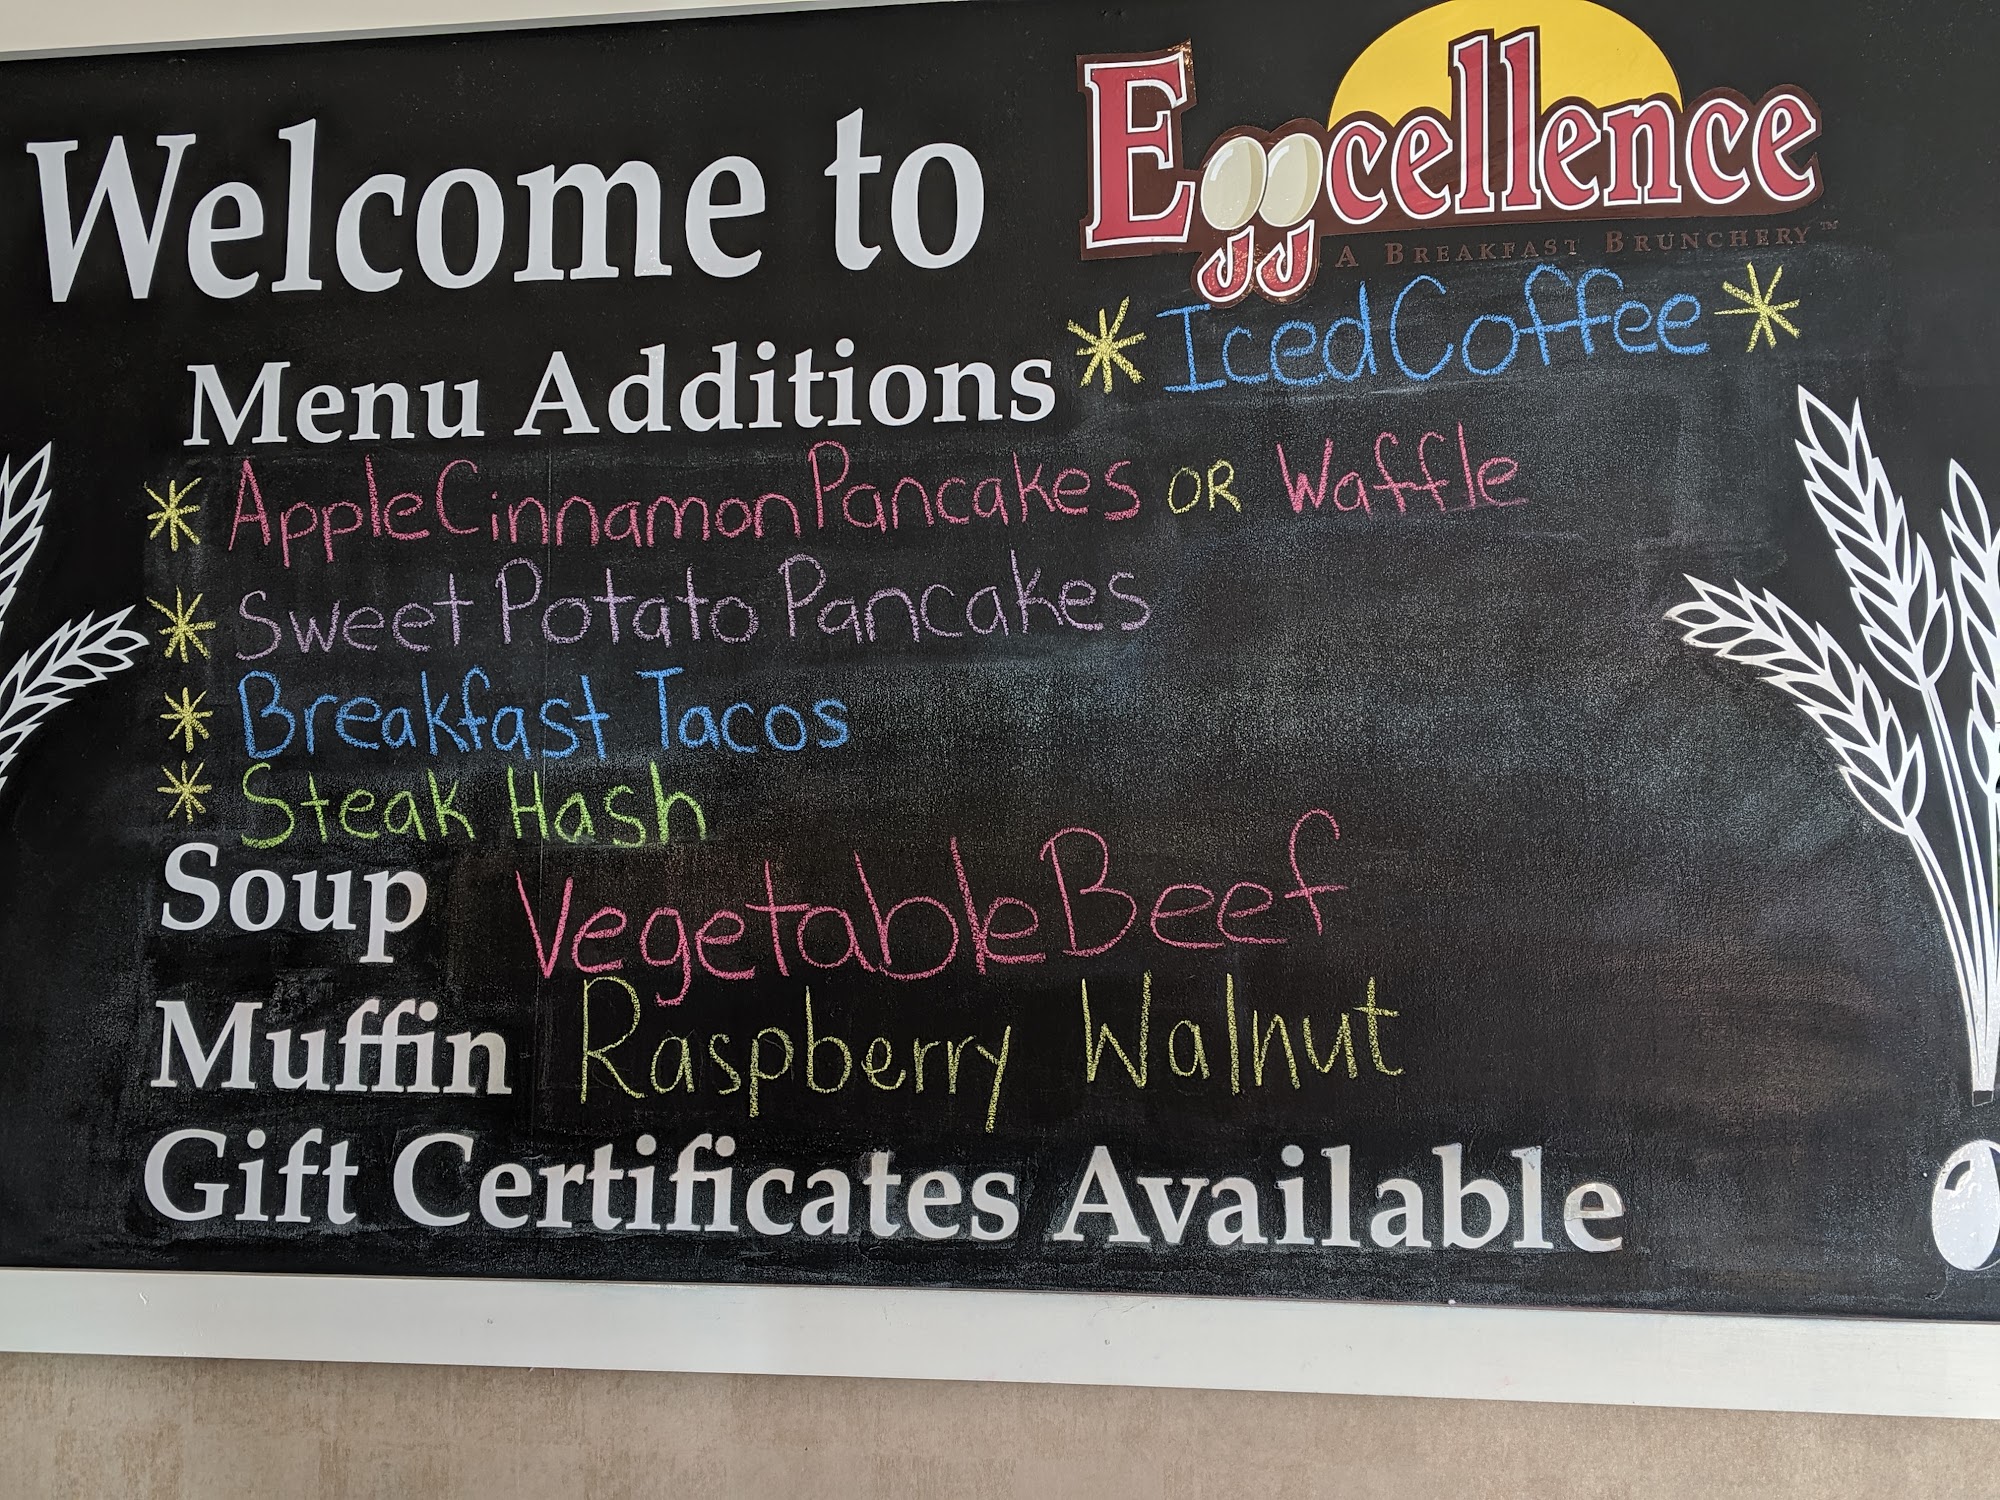 Welcome to Eggcellence
A BREAKFAST BRUNCHERY™
Menu Additions * Iced Coffee *
* Apple Cinnamon Pancakes OR Waffle
* Sweet Potato Pancakes
* Breakfast Tacos
* Steak Hash
Soup Vegetable Beef
Muffin Raspberry Walnut
Gift Certificates Available